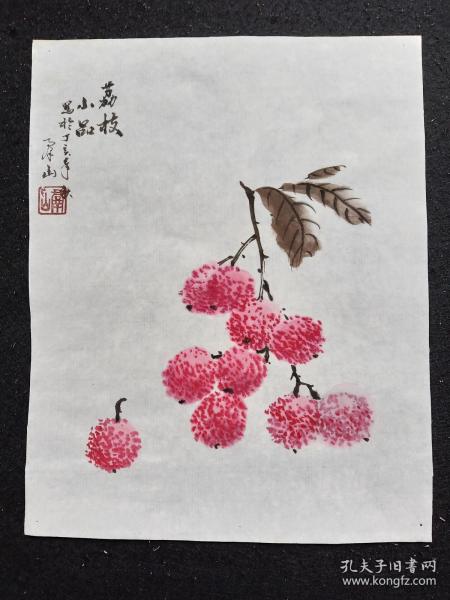 荔枝
小品
写於丁亥年秋
孔夫子旧书网
www.kongfz.com